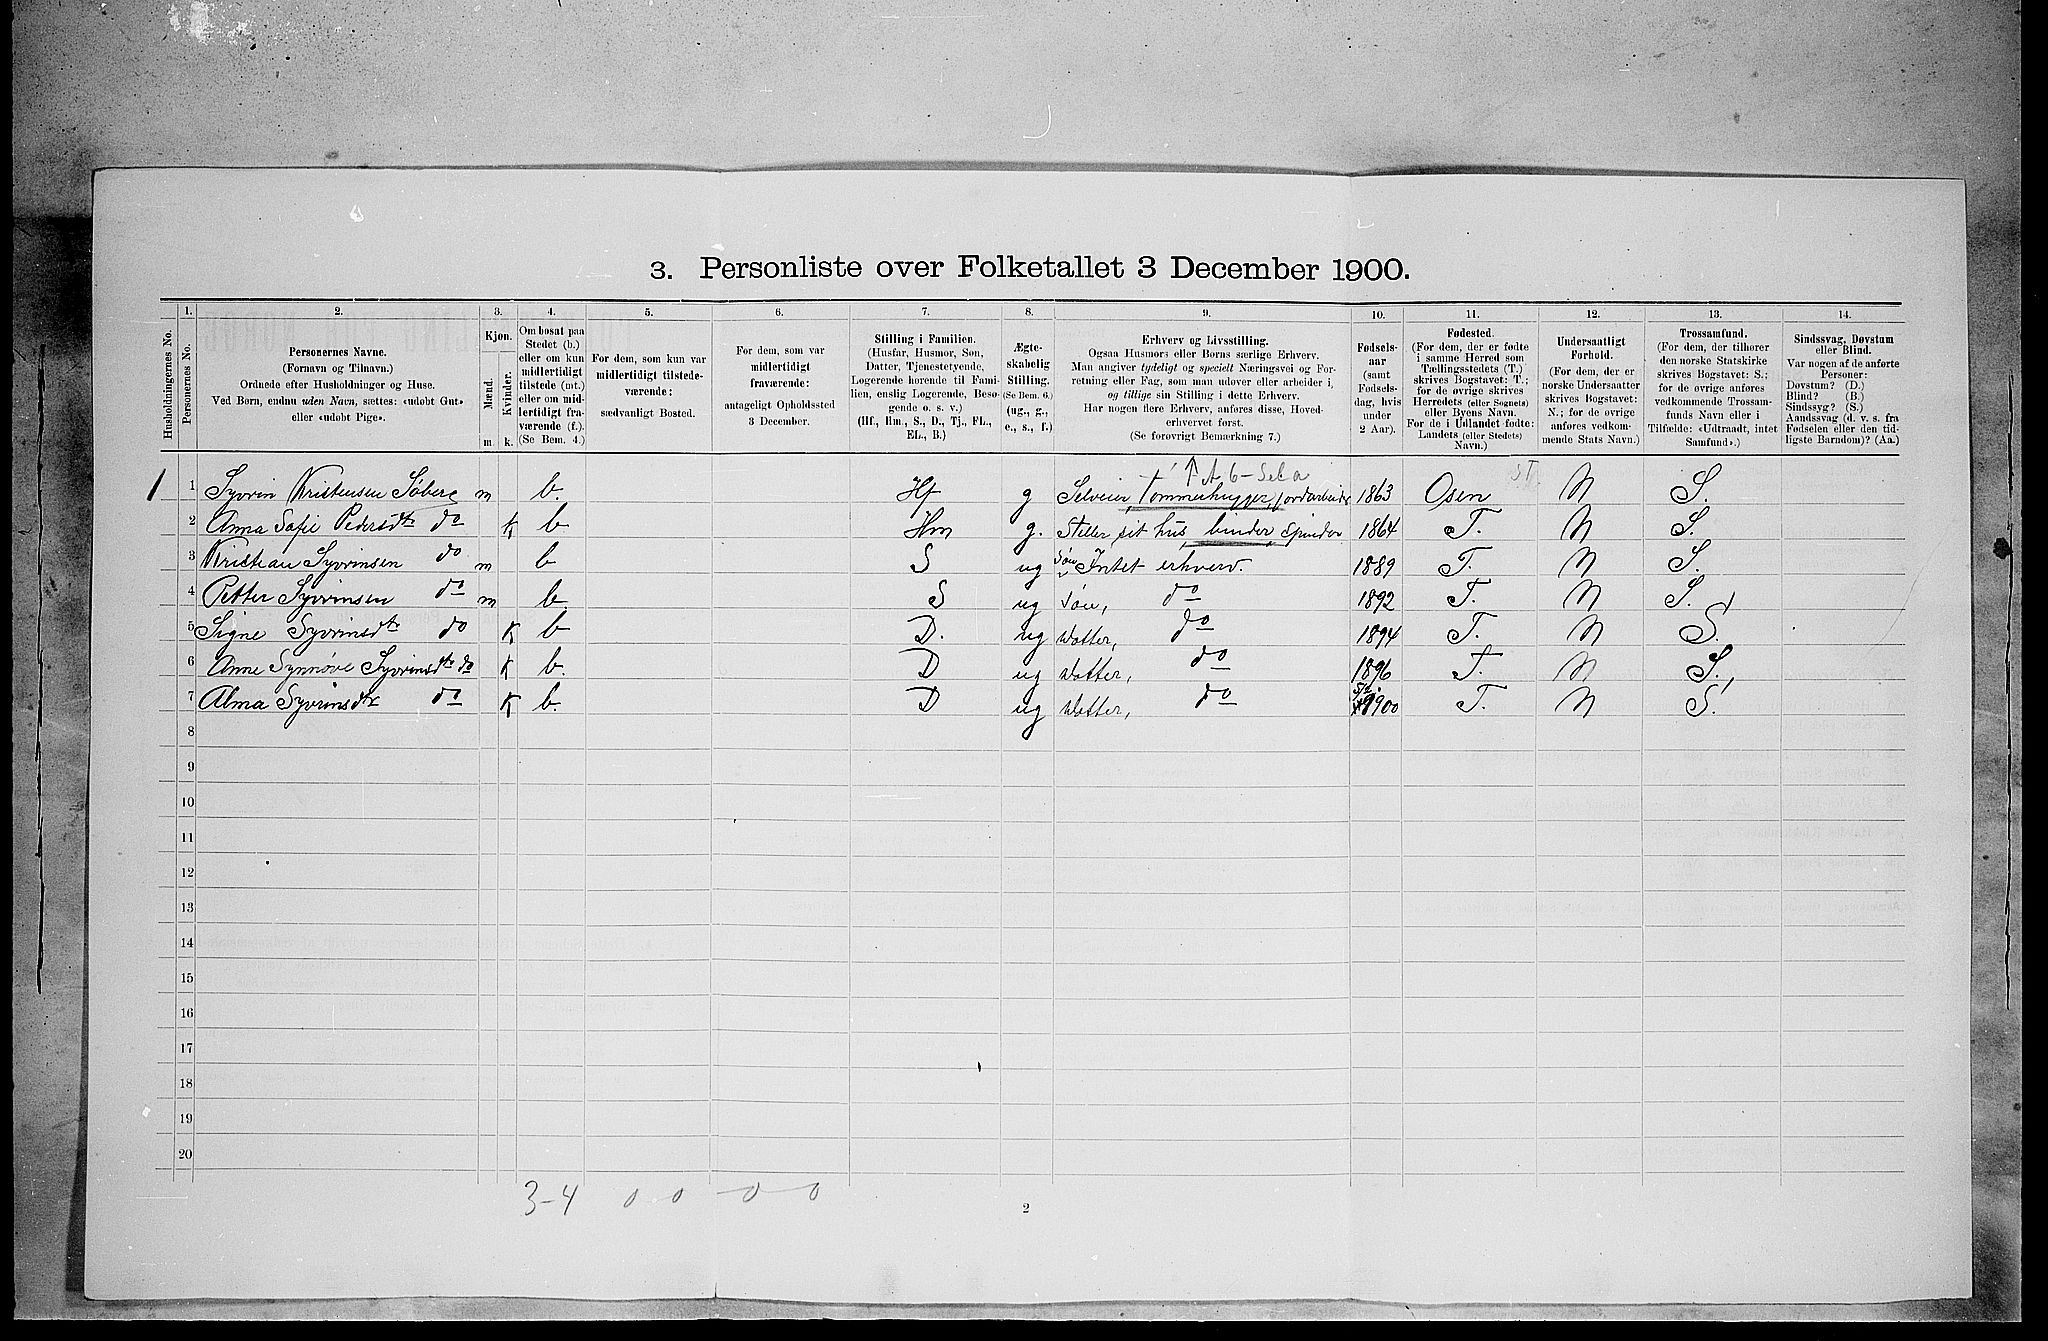 3. Personliste over Folketallet 3 December 1900.
1. 2. 3. 4. 5. 6. 7. 8. 9. 10. 11. 12. 13. 14.
Husholdningernes No.
Personernes No.
Personernes Navne.
(Fornavn og Tilnavn.)
Ordnede efter Husholdninger og Huse.
Ved Børn, endnu uden Navn, sættes: «udøbt Gut»
eller «udøbt Pige».
Kjøn.
Mænd.
Kvinder.
m. k.
Om bosat paa
Stedet (b.)
eller om kun
midlertidigt
tilstede (mt.)
eller om mid-
lertidigt fra-
værende (f.).
(Se Bem. 4.)
For dem, som kun var
midlertidigt tilstede-
værende:
sædvanligt Bosted.
For dem, som var
midlertidigt
fraværende:
antageligt Opholdssted
3 December.
Stilling i Familien.
(Husfar, Husmor, Søn,
Datter, Tjenestetyende,
Logerende hørende til Fami-
lien, enslig Logerende, Besø-
gende o. s. v.)
(Hf., Hm., S., D., Tj., FL.,
EL., B.)
Ægte-
skabelig
Stilling.
(Se Bem. 6.)
(ug., g.,
e., s., f.)
Erhverv og Livsstilling.
Ogsaa Husmors eller Børns særlige Erhverv.
Man angiver tydeligt og specielt Næringsvei og For-
retning eller Fag, som man udøver eller arbeider i,
og tillige sin Stilling i dette Erhverv.
Har nogen flere Erhverv, anføres disse, Hoved-
erhvervet først.
(Se forøvrigt Bemærkning 7.)
Fødsels-
aar
(samt
Fødsels-
dag, hvis
under
2 Aar).
Fødested.
(For dem, der er fødte
i samme Herred som
Tællingsstedets (T.)
skrives Bogstavet: T.;
for de øvrige skrives
Herredets (eller Sognets)
eller Byens Navn.
For de i Udlandet fødte:
Landets (eller Stedets)
Navn.)
Undersaatligt
Forhold.
(For dem, der er
norske Undersaatter
skrives Bogstavet:
N.; for de øvrige
anføres vedkom-
mende Stats Navn.)
Trossamfund.
(For dem, der tilhører
den norske Statskirke
skrives Bogstavet: S.;
for de øvrige anføres
vedkommende Trossam-
funds Navn eller i
Tilfælde: «Udtraadt, intet
Samfund».)
Sindssvag, Døvstum
eller Blind.
Var nogen af de anførte
Personer:
Døvstum? (D.)
Blind? (B.)
Sindssyg? (S.)
Aandssvag (d. v. s. fra
Fødselen eller den tid-
ligste Barndom)? (Aa.)
1 1 Syvrin Kristensen Søberg m b. Hf g Selveier, Tømmerhugger, jordarbeider 1863 Osen N S.
2 Anna Sofie Pedersdtr do K b. Hm g. Steller sit hus, binder, spinder 1864 T. N S.
3 Kristian Syvrinsen do m b S ug Søn Intet erhverv. 1889 T. N S.
4 Petter Syvrinsen do m b. S ug Søn, do 1892 T. N S.
5 Signe Syvrinsdtr do K b D. ug datter, do 1894 T. N S.
6 Anne Synnøve Syvrinsdtr do K b. D ug datter, do 1896 T. N S.
7 Alma Syvrinsdtr do K b. D ug datter, do 1900 T. N S.
8
9
10
11
12
13
14
15
16
17
18
19
20
3-4 0 0 0-0
2